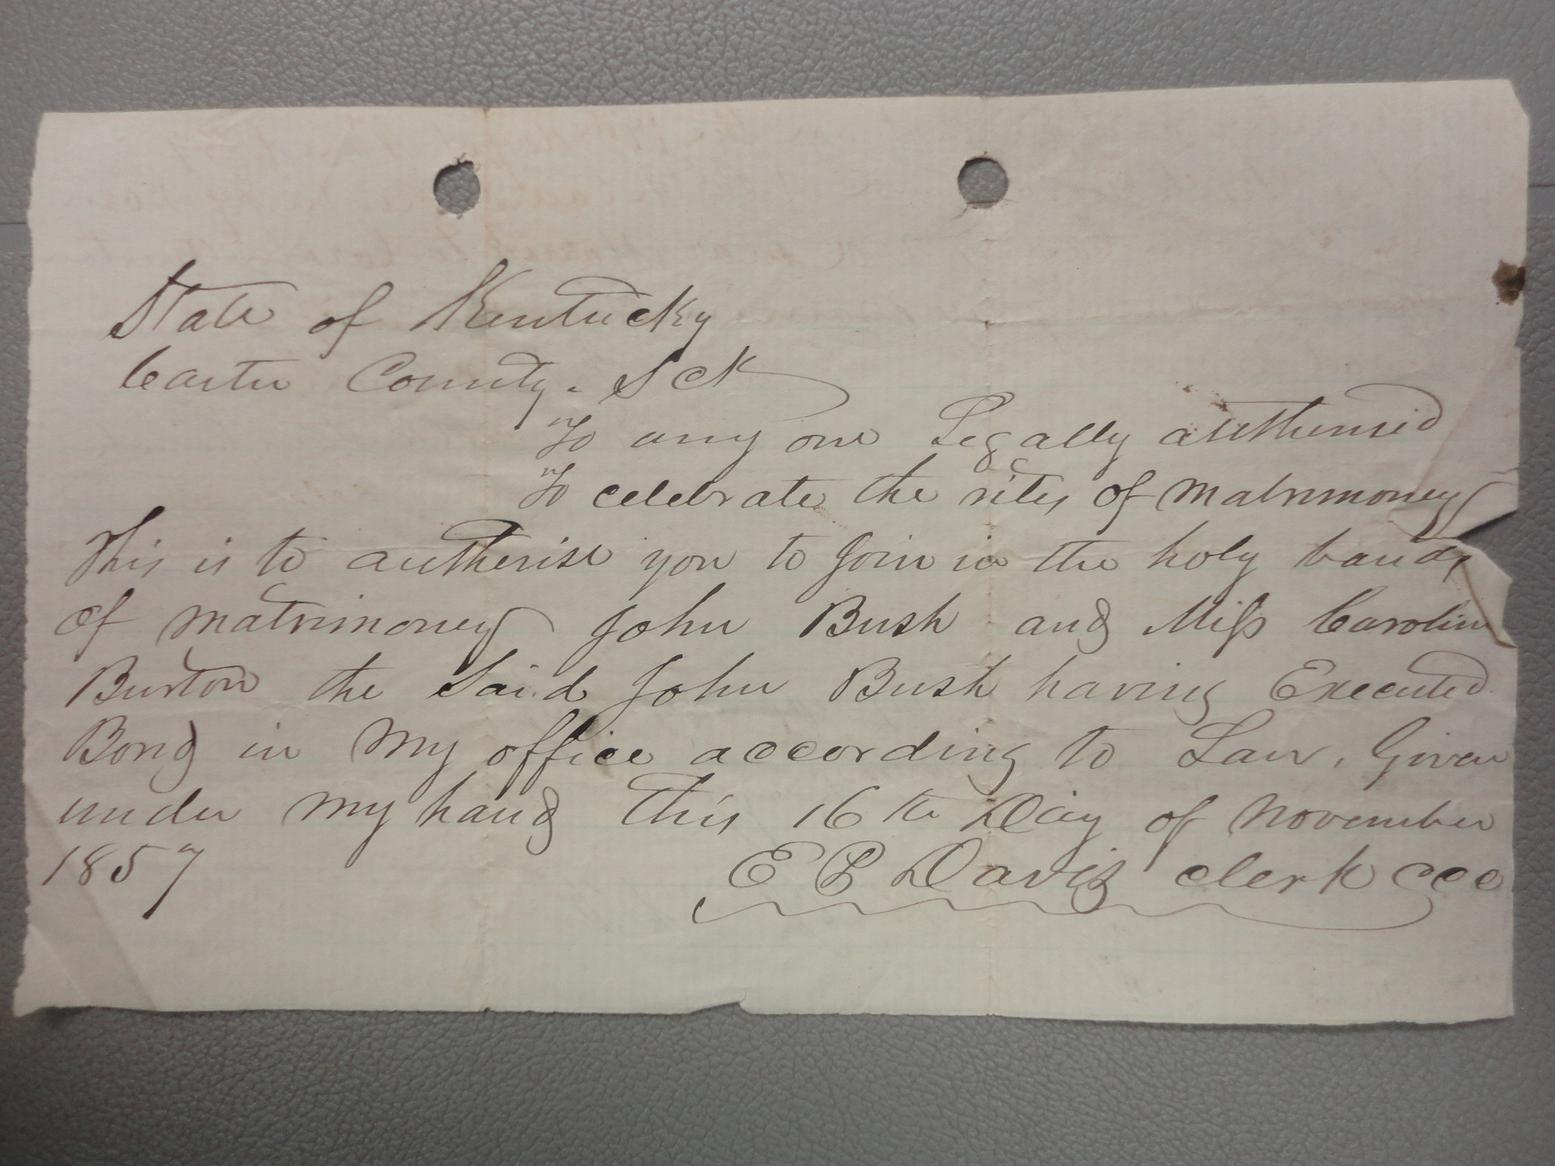 State of Kentucky
Carter County. Sct
To any one Legally autherised
To celebrate the rites of matrimoney
This is to autherise you to Join in the holy bands
of matrimoney John Bush and Miss Carolin
Burton the Said John Bush having Executed
Bond in my office according to Law, Given
under my hand this 16th Day of November
1857
E P Davis clerk CCC